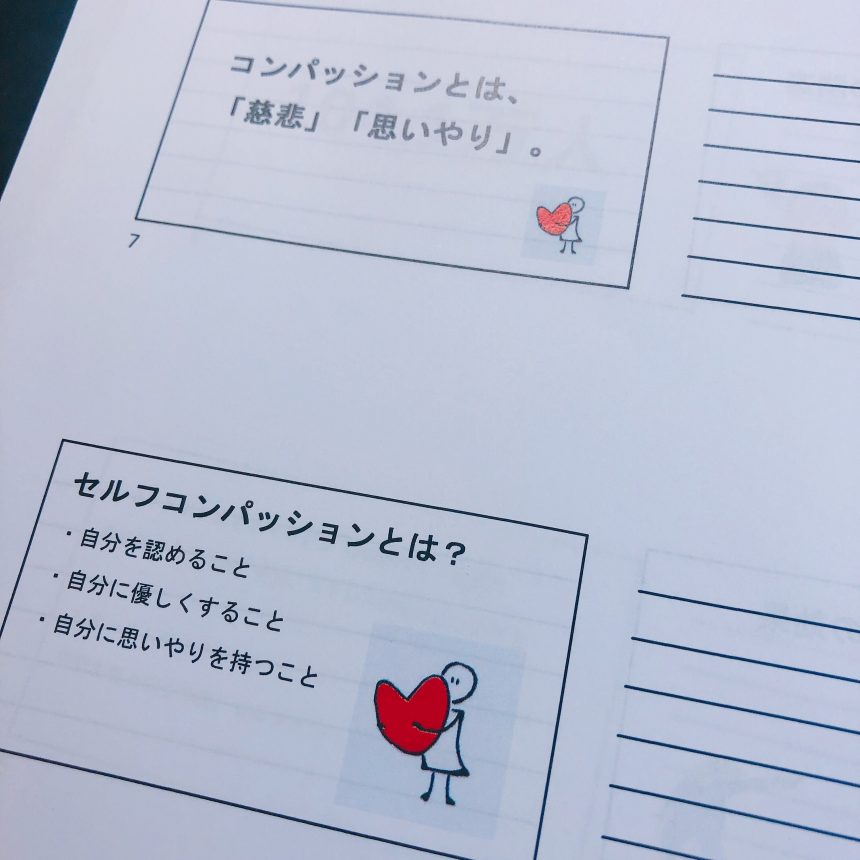 コンパッションとは、
「慈悲」「思いやり」。
7
セルフコンパッションとは？
・自分を認めること
・自分に優しくすること
・自分に思いやりを持つこと